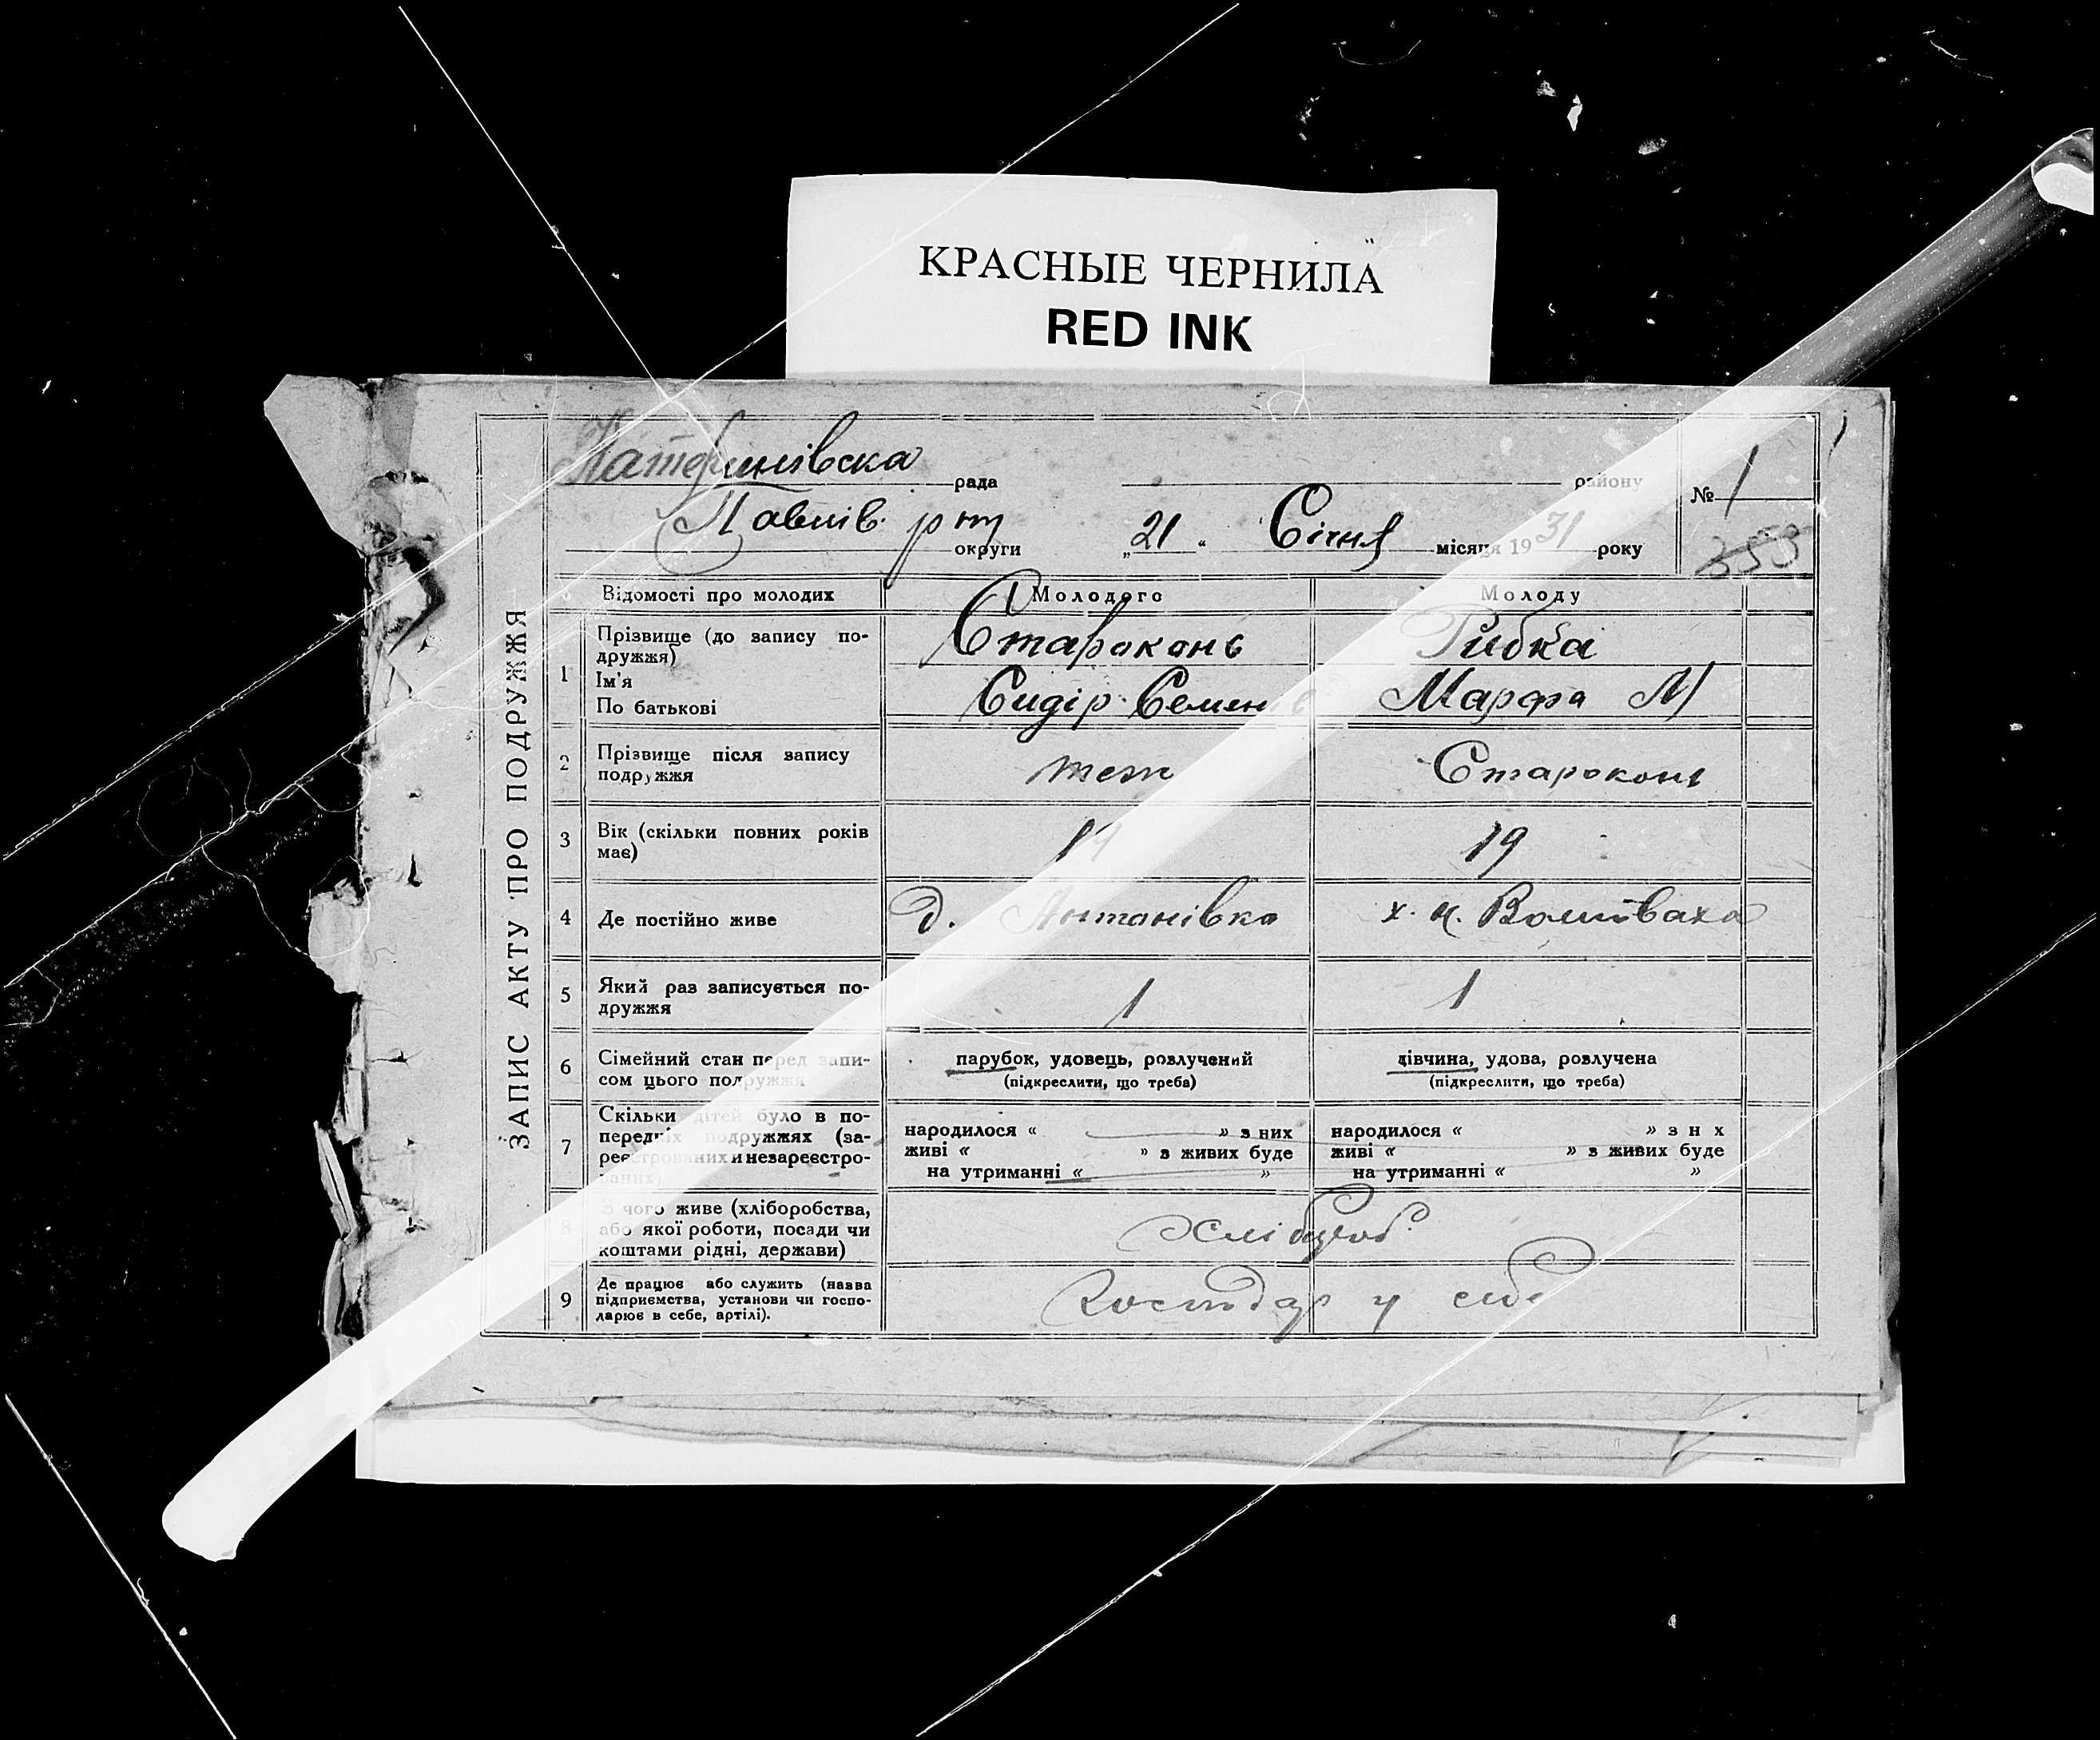 КРАСНЫЕ ЧЕРНИЛА
RED INK
ЗАПИС АКТУ ПРО ПОДРУЖЖЯ
Катеринівска рада району № 1
Павлів. р округи „21“ Січня місяця 1931 року 353
Відомості про молодих Молодого Молоду
1 Прізвище (до запису по-
дружжя) Староконь Рибка
Ім'я
По батькові Сидір Семенів Марфа М
2 Прізвище після запису
подружжя теж Староконь
3 Вік (скільки повних років
має) 19 19
4 Де постійно живе д. Антонівка х. н.
5 Який раз записується по-
дружжя 1 1
6 Сімейний стан перед запи-
сом цього подружжя парубок, удовець, розлучений дівчина, удова, розлучена
(підкреслити, що треба) (підкреслити, що треба)
7 Скільки дітей було в по-
передніх подружжях (за-
реєстрованих и незареєстро-
ваних) народилося « » з них народилося « » з н х
живі « » з живих буде живі « » з живих буде
на утриманні « » на утриманні « »
8 З чого живе (хліборобства,
або якої роботи, посади чи
коштами рідні, держави) хлібороб.
9 Де працює або служить (назва
підприємства, установи чи госпо-
дарює в себе, артілі). Господар у себе